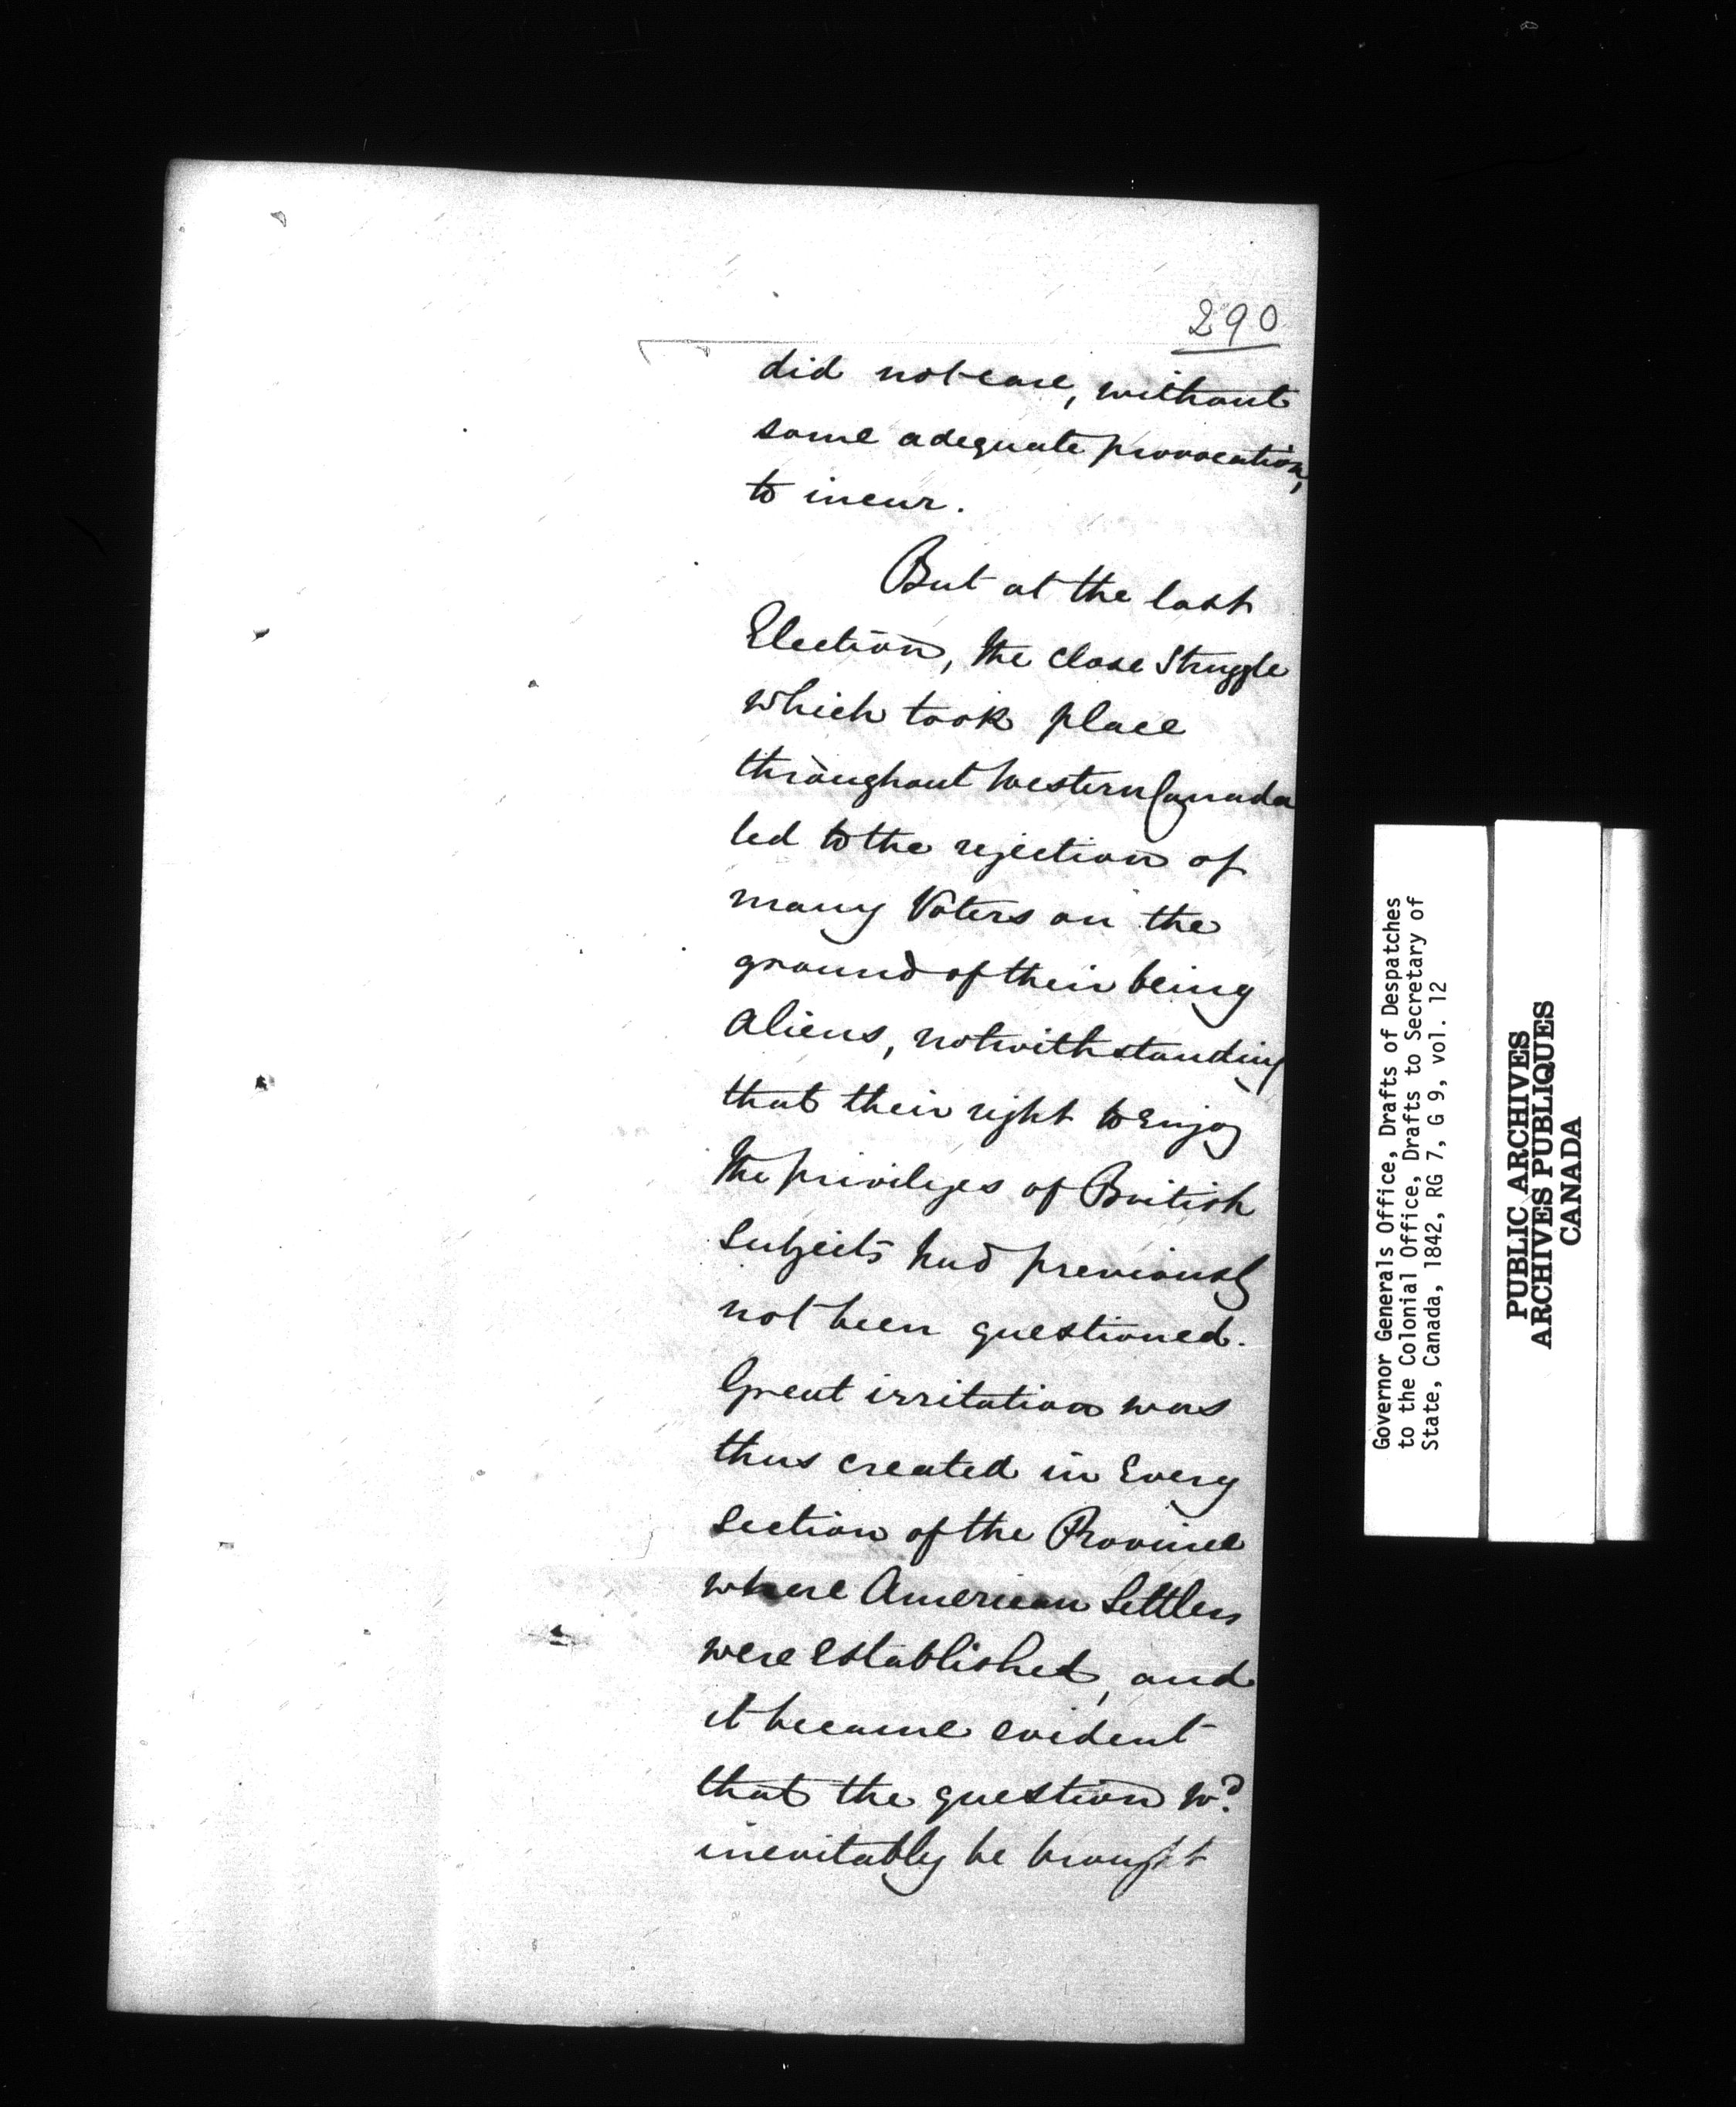 290
did not care, without
some adequate provocation,
to incur.
But at the last
Election, the close struggle
which took place
throughout Western Canada
led to the rejection of
many Voters on the
ground of their being
Aliens, notwithstanding
that their right to enjoy
the privileges of British
Subjects had previously
not been questioned.
Great irritation was
thus created in every
section of the Province
where American Settlers
were established, and
it became evident
that the question wd.
inevitably be brought
Governor Generals Office, Drafts of Despatches
to the Colonial Office, Drafts to Secretary of
State, Canada, 1842, RG 7, G 9, vol. 12
PUBLIC ARCHIVES
ARCHIVES PUBLIQUES
CANADA